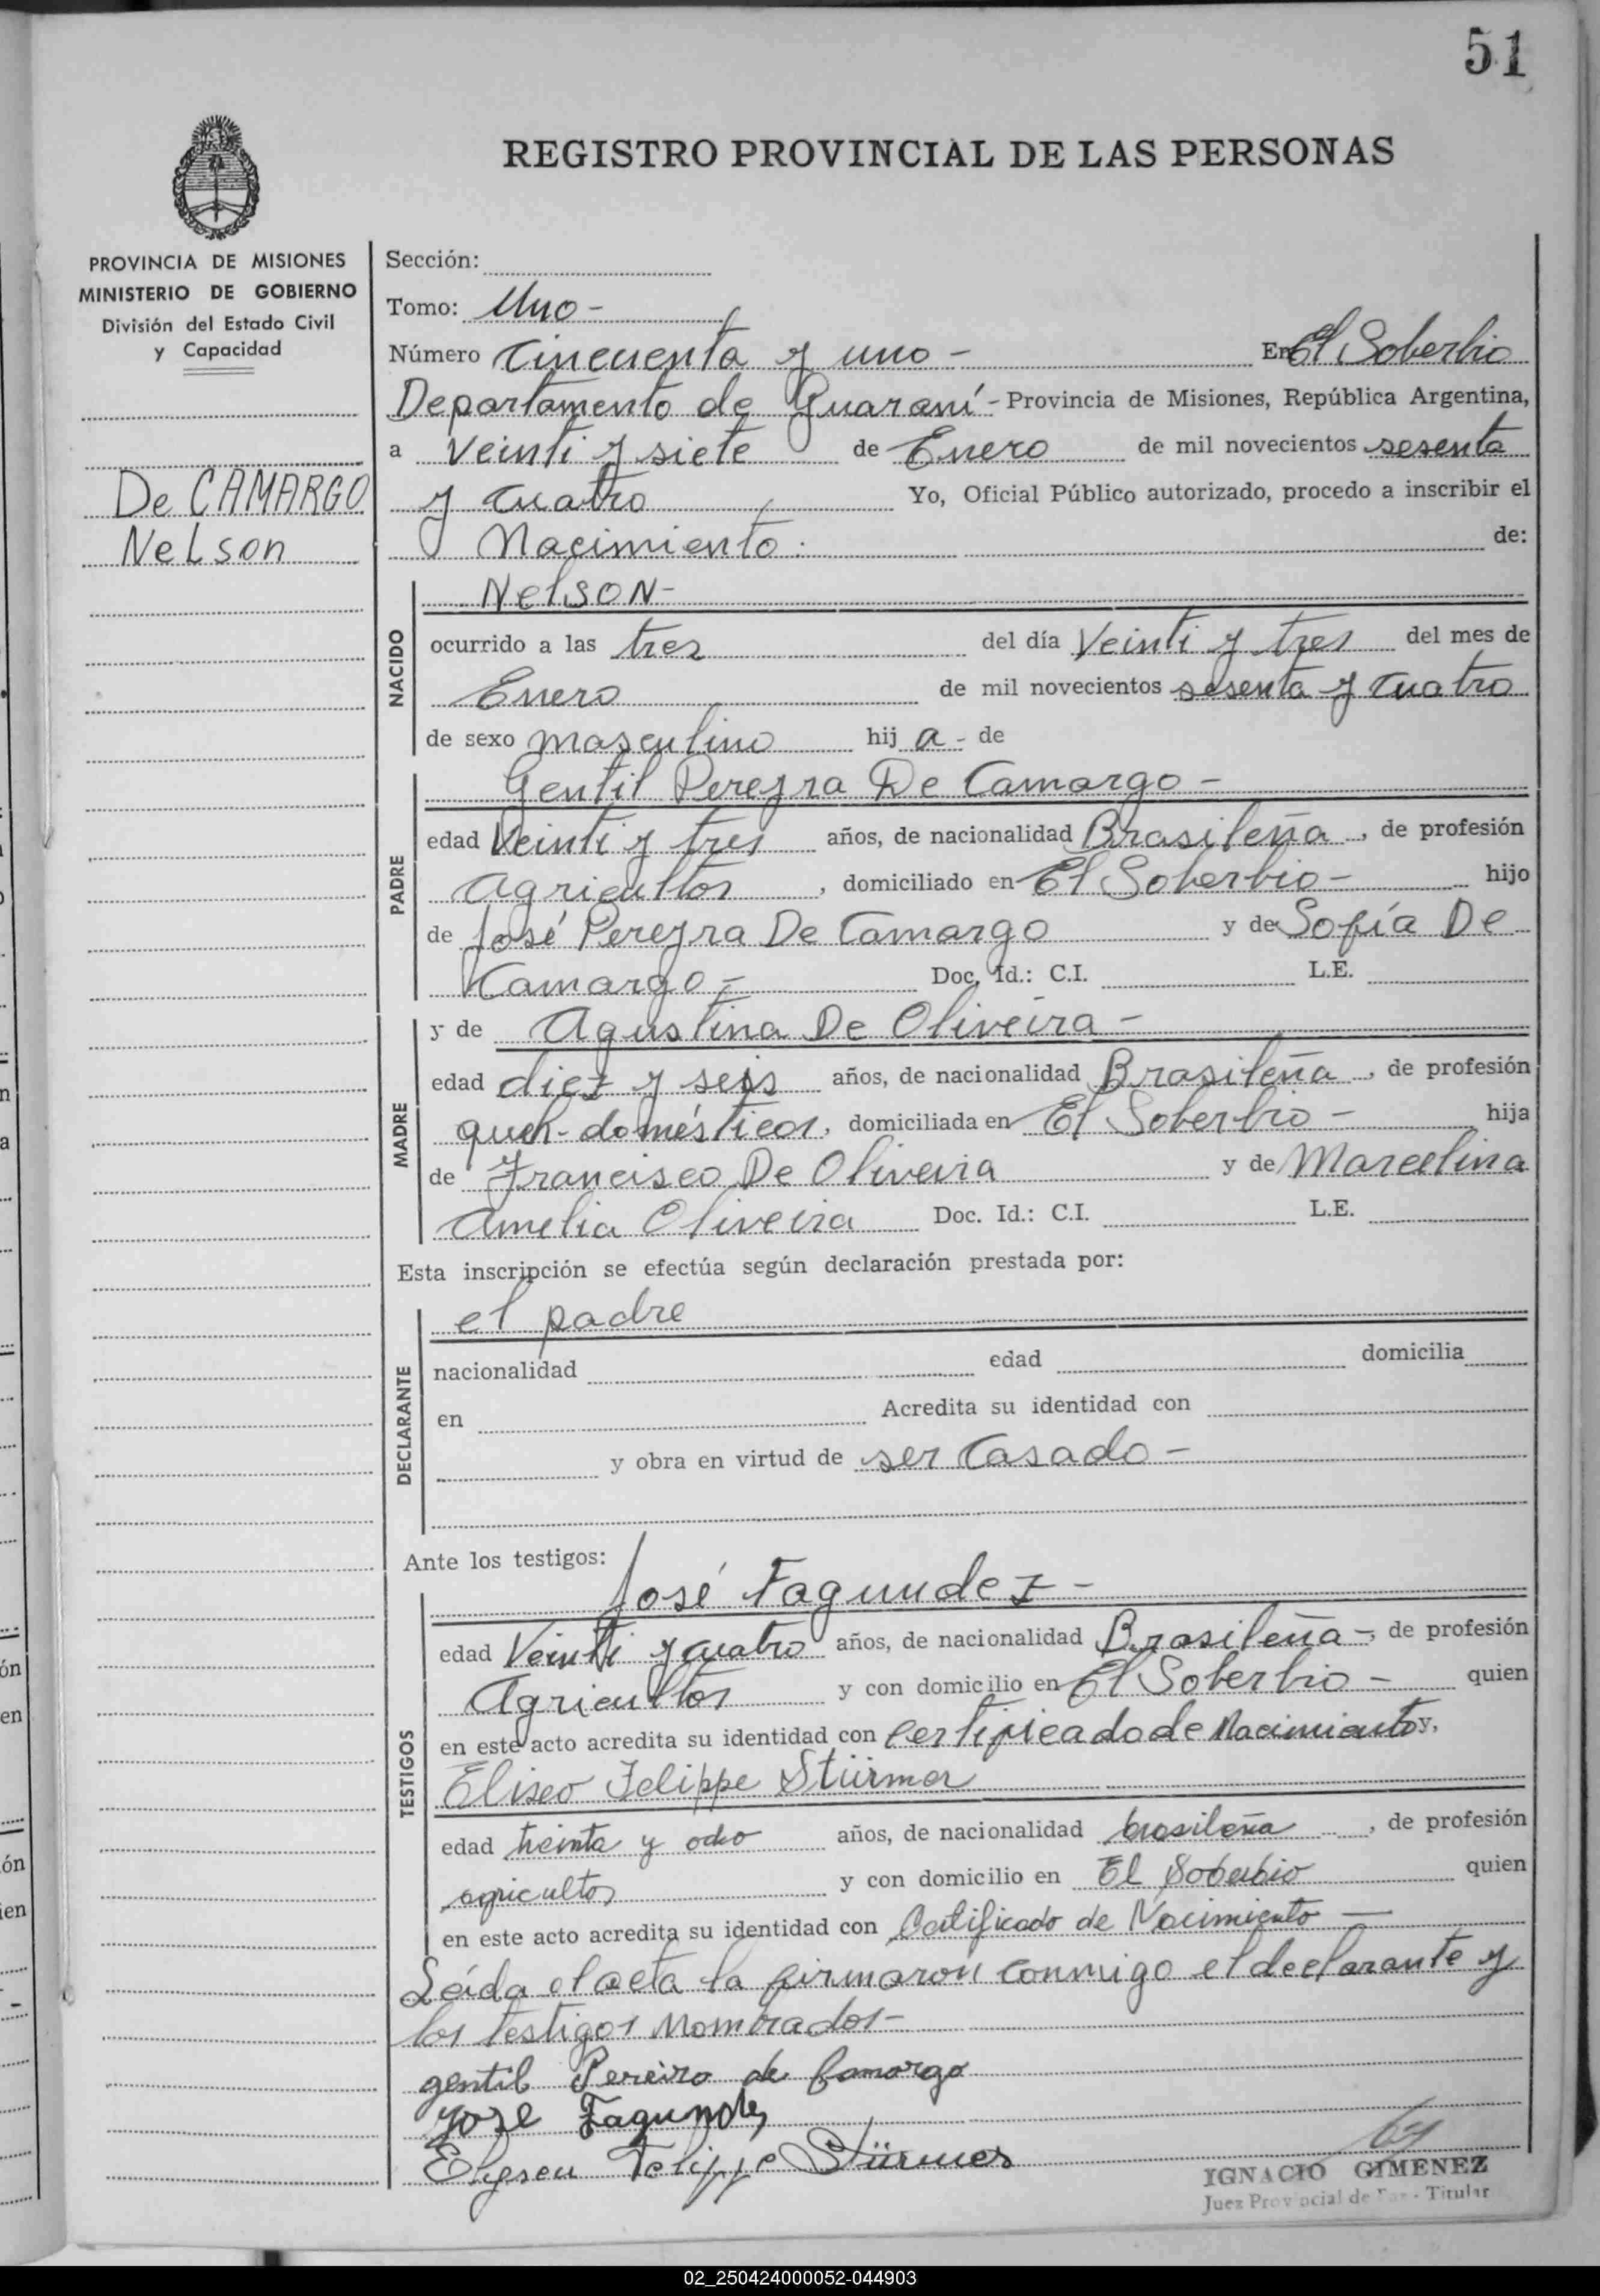 51
REGISTRO PROVINCIAL DE LAS PERSONAS
PROVINCIA DE MISIONES
MINISTERIO DE GOBIERNO
División del Estado Civil
y Capacidad
De CAMARGO
NeLson
Sección:
Tomo: Uno -
Número Cincuenta y uno - En El Soberbio
Departamento de Guaraní - Provincia de Misiones, República Argentina,
a Veinti y siete de Enero de mil novecientos sesenta
y cuatro Yo, Oficial Público autorizado, procedo a inscribir el
Nacimiento. de:
NACIDO
NelSON-
ocurrido a las tres del día Veinti y tres del mes de
Enero de mil novecientos sesenta y cuatro
de sexo masculino hij a - de
PADRE
Gentil Pereyra De Camargo -
edad Veinti y tres años, de nacionalidad Brasileña, de profesión
Agricultor, domiciliado en El Soberbio - hijo
de José Pereyra De Camargo y de Sofía De
Camargo - Doc. Id.: C.I. L.E.
MADRE
y de Agustina De Oliveira -
edad diez y seis años, de nacionalidad Brasileña, de profesión
queh- domésticos, domiciliada en El Soberbio - hija
de Francisco De Oliveira y de Marcelina
Amelia Oliveira Doc. Id.: C.I. L.E.
Esta inscripción se efectúa según declaración prestada por:
DECLARANTE
el padre
nacionalidad edad domicilia
en Acredita su identidad con
y obra en virtud de ser Casado -
Ante los testigos:
TESTIGOS
José Fagundez -
edad Veinti y cuatro años, de nacionalidad Brasileña -, de profesión
Agricultor y con domicilio en El Soberbio - quien
en este acto acredita su identidad con Certificado de Nacimiento y,
Eliseo Felippe Stürmer
edad treinta y ocho años, de nacionalidad brasileña, de profesión
agricultor y con domicilio en El Soberbio quien
en este acto acredita su identidad con Certificado de Nacimiento -
Leída el acta la firmaron conmigo el declarante y
los testigos Nombrados -
gentil Pereira de Camargo
Joze Fagundes
Elyseu Felippe Stürmer
IGNACIO GIMENEZ
Juez Provincial de Paz - Titular
02_250424000052-044903